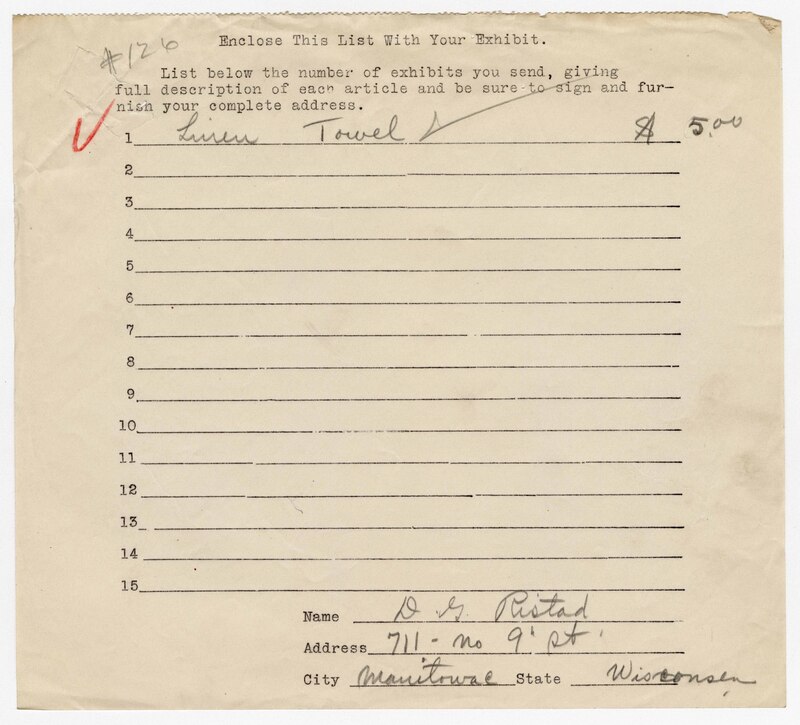 #126
Enclose This List With Your Exhibit.
List below the number of exhibits you send, giving
full description of each article and be sure to sign and fur-
nish your complete address.
1 Linen Towel $ 5.00
2
3
4
5
6
7
8
9
10
11
12
13
14
15
Name D. G. Ristad
Address 711 - no 9' st.
City Manitowac State Wisconsen